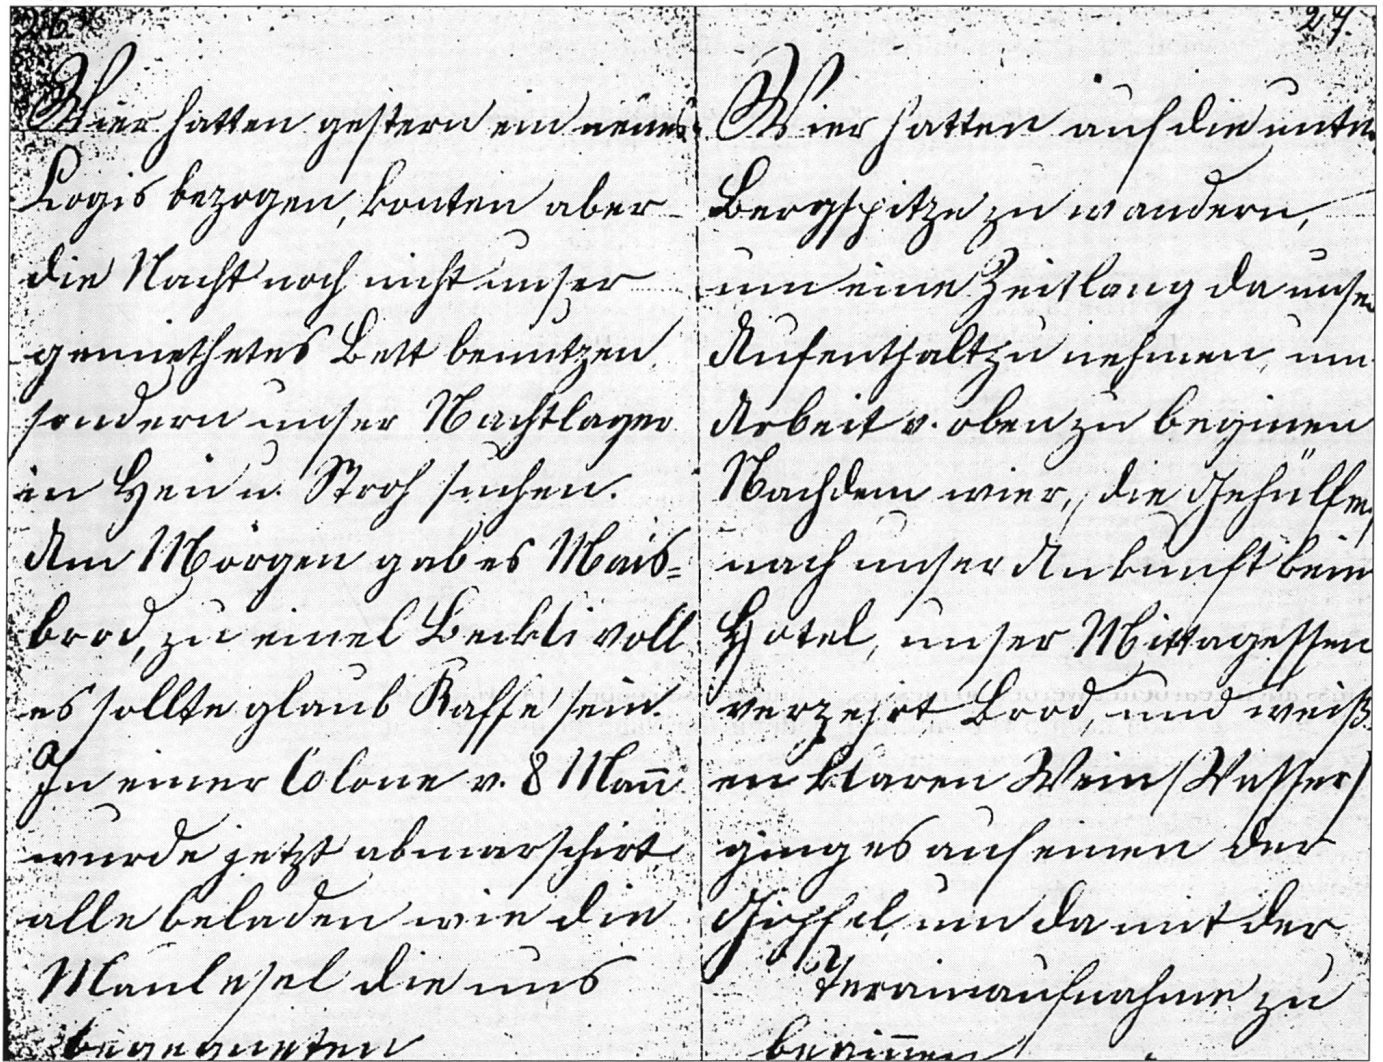 26
Wier hatten gestern ein neues
Logis bezogen, konten aber
die Nacht noch nicht unser
gemiethetes Bett benutzen
sondern unser Nachtlager
in Heu u. Stroh suchen.
Am Morgen gab es Mais=
brod, zu einel Beckli voll
es sollte glaub Kaffe sein.
In einer Colone v. 8 Mann
wurde jetzt abmarschirt
alle beladen wie die
Maulesel die uns
begegneten
27.
Wier hatten auf die untere
Bergspitze zu wandern,
um eine Zeitlang da unser
Aufenthalt zu nehmen, um
Arbeit v. oben zu beginen
Nachdem wier, die Gehülfen,
nach unser Ankunft beim
Hotel, unser Mittagessen
verzehrt Brod, und weiß
en klaren Wein (Wasser)
ging es auf einen der
Gipfel, um da mit der
Terainaufnahme zu
beginnen